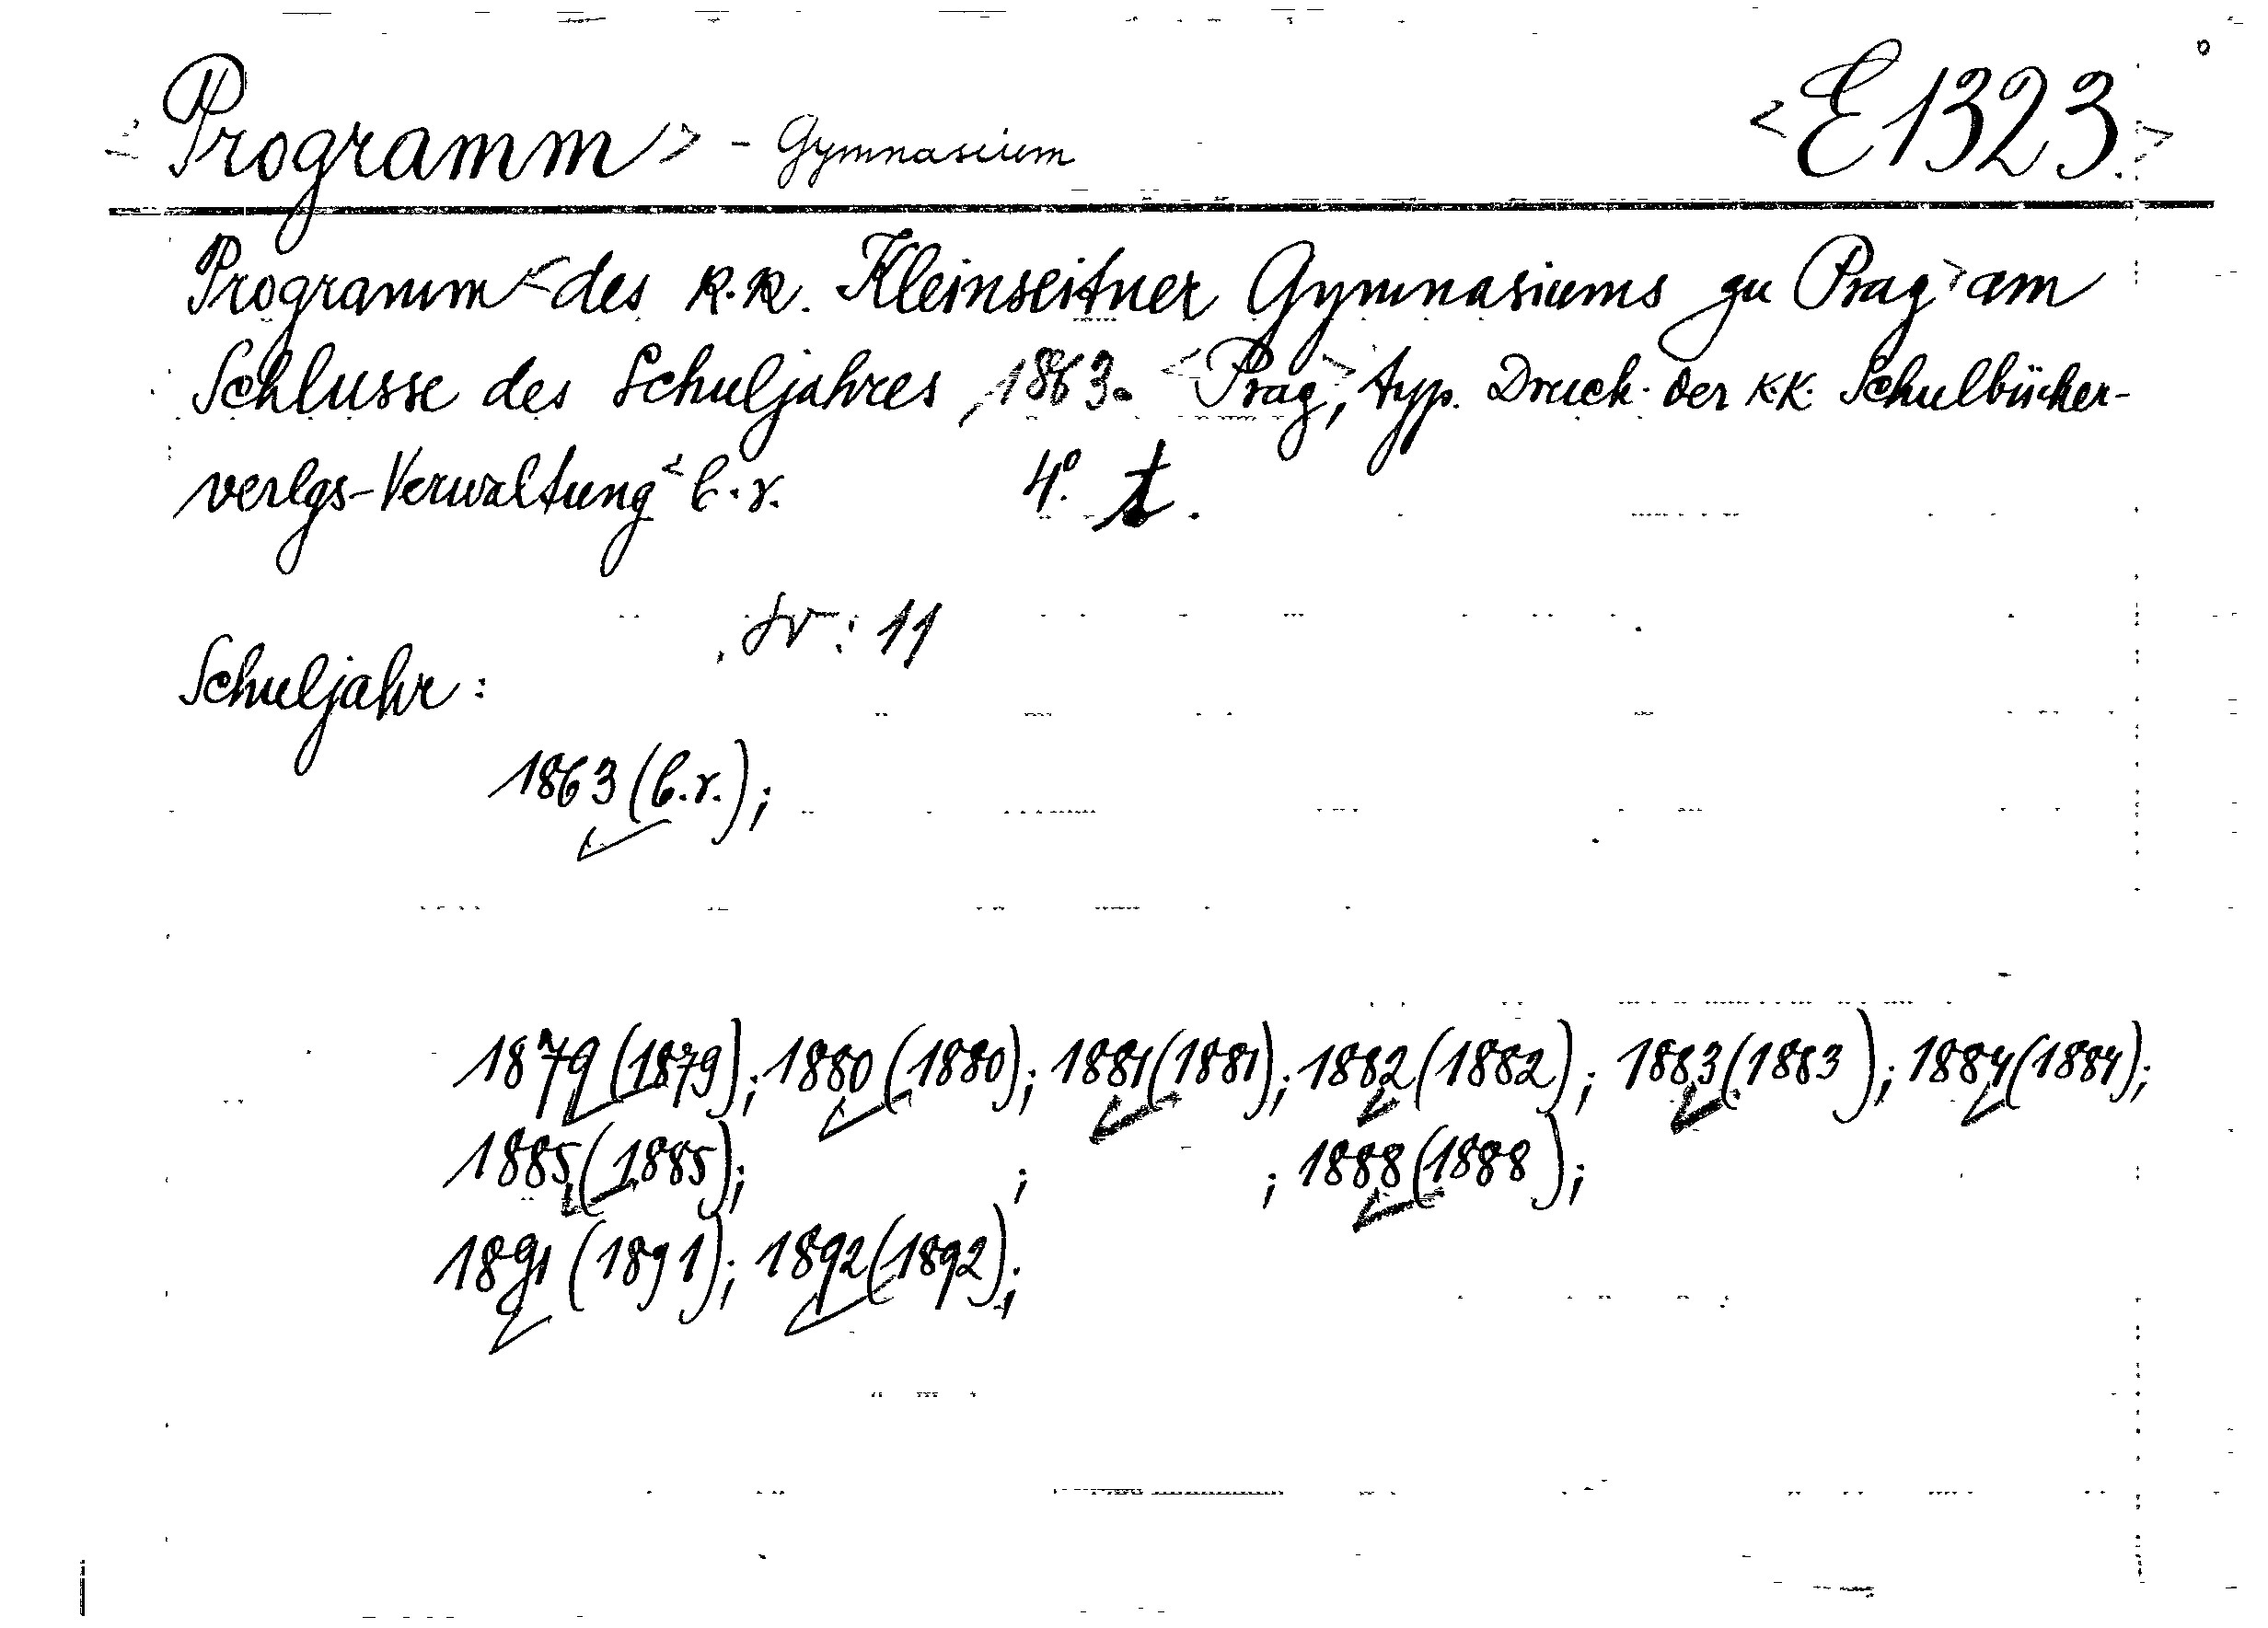 <Programm> - Gymnasium <E1323.>
Programm <des k.k. Kleinseitner Gymnasiums zu Prag> am
Schlusse des Schuljahres, 1863. <Prag>, typ. Druck. der k.k. Schulbücher-
verlgs-Verwaltung <b.r. 4º. t.
sv: 11
Schuljahr:
1863 (b.r.);
1879 (1879); 1880 (1880); 1881 (1881); 1882 (1882); 1883 (1883); 1884 (1884);
1885 (1885); ; ; 1888 (1888);
1891 (1891); 1892 (1892);